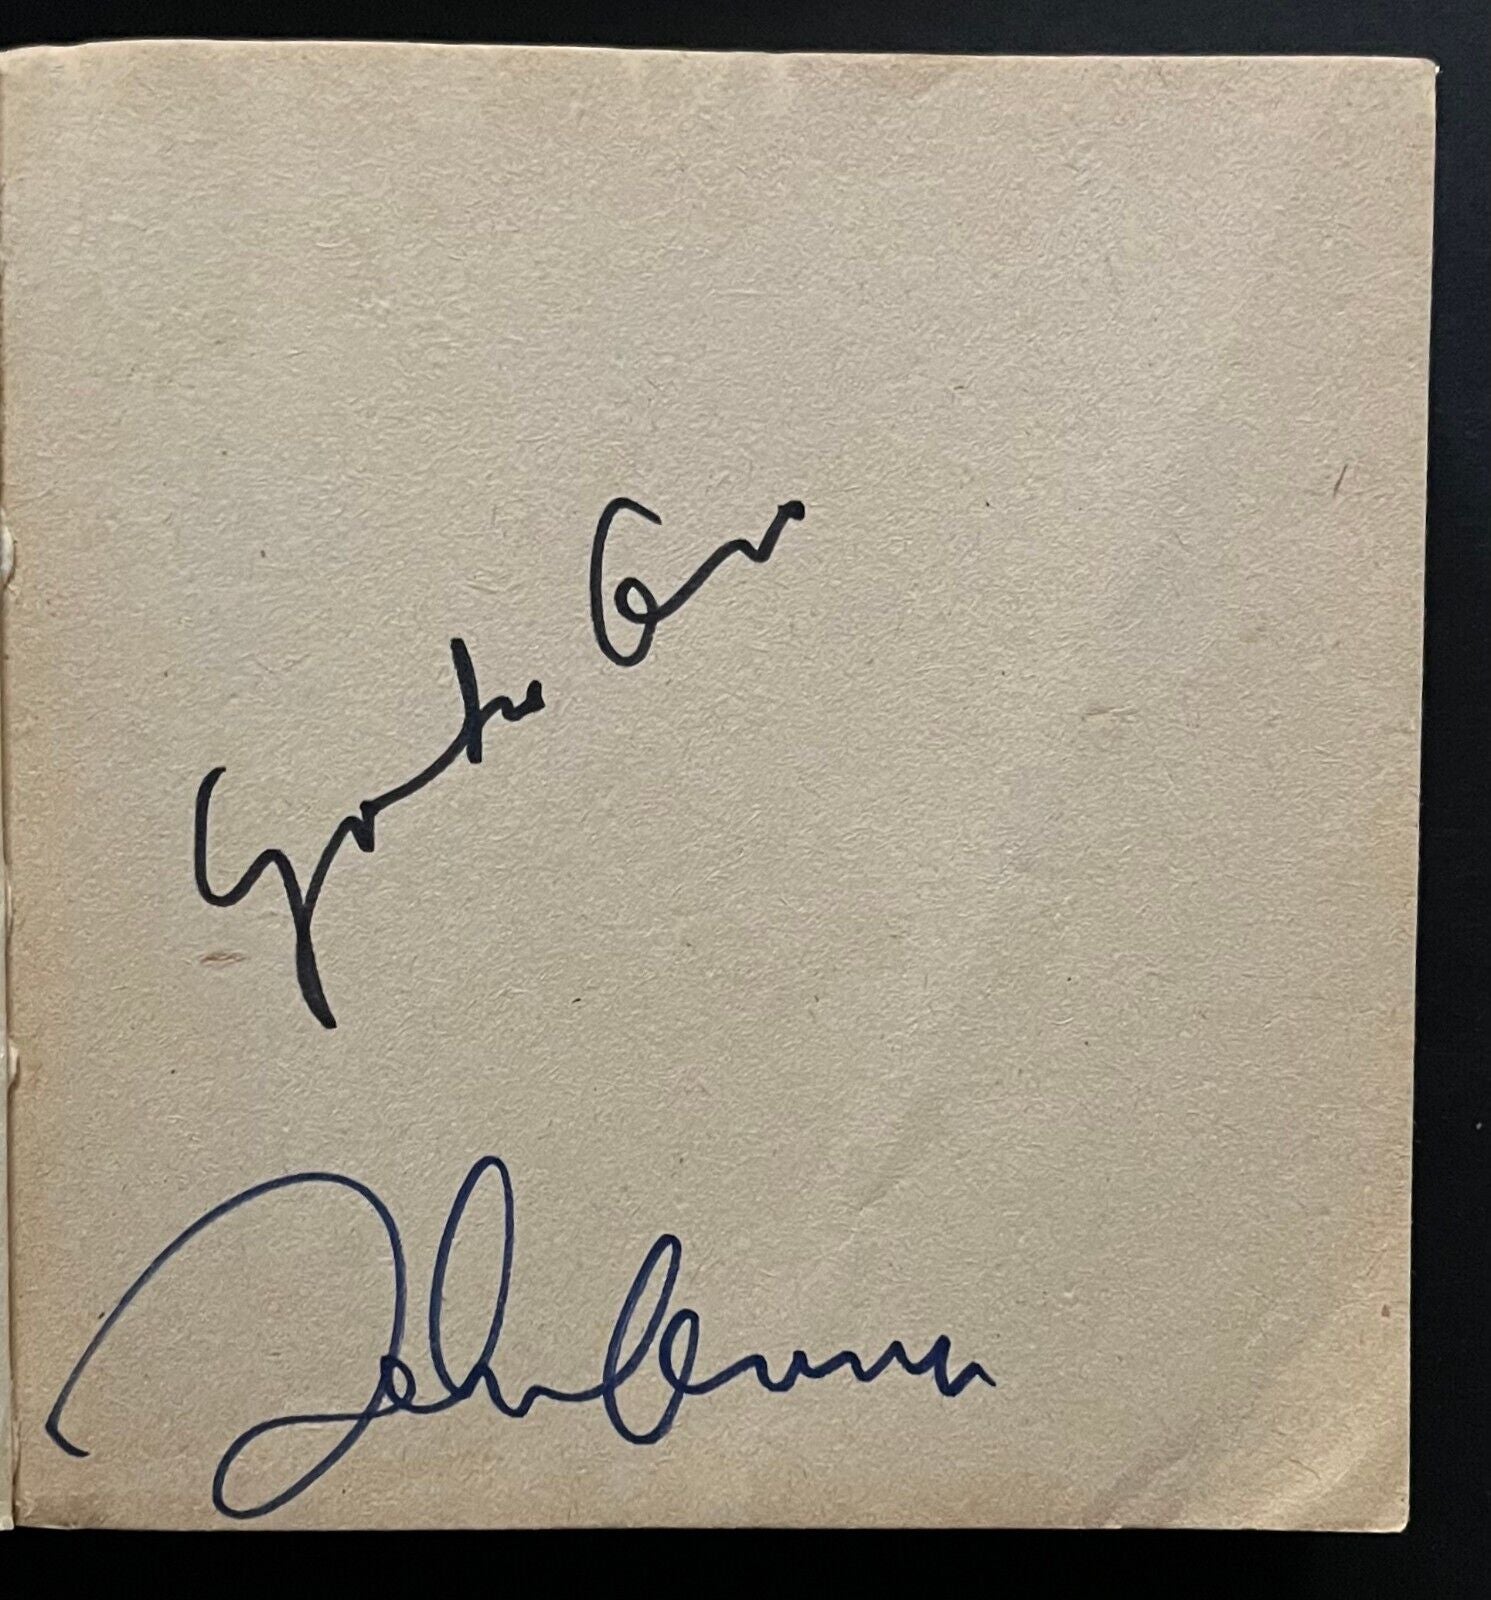 Yoko Ono
John Lennon